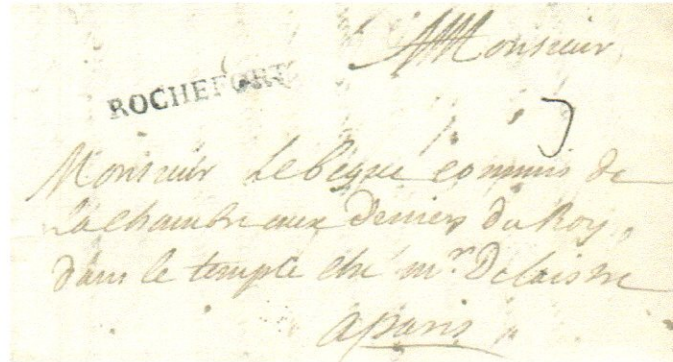 Monsieur
ROCHEFORT
Monsieur Lebegue commis de
la chambre aux deniers du Roy,
dans le temple ché mr. Delaistre
a paris